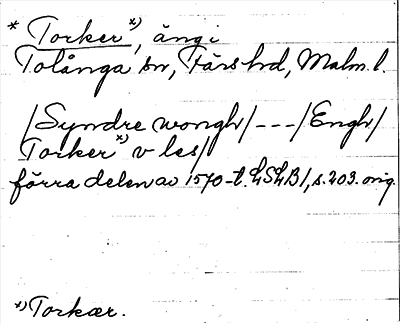 * Torker *), äng i
Tolånga sn, Färs hd, Malm. l.
/Syndre wongh/ --- /Engh/
Torker *) v les/
förra delen av 1570-t. LSLB1, s. 203. orig.
*) Torkær.